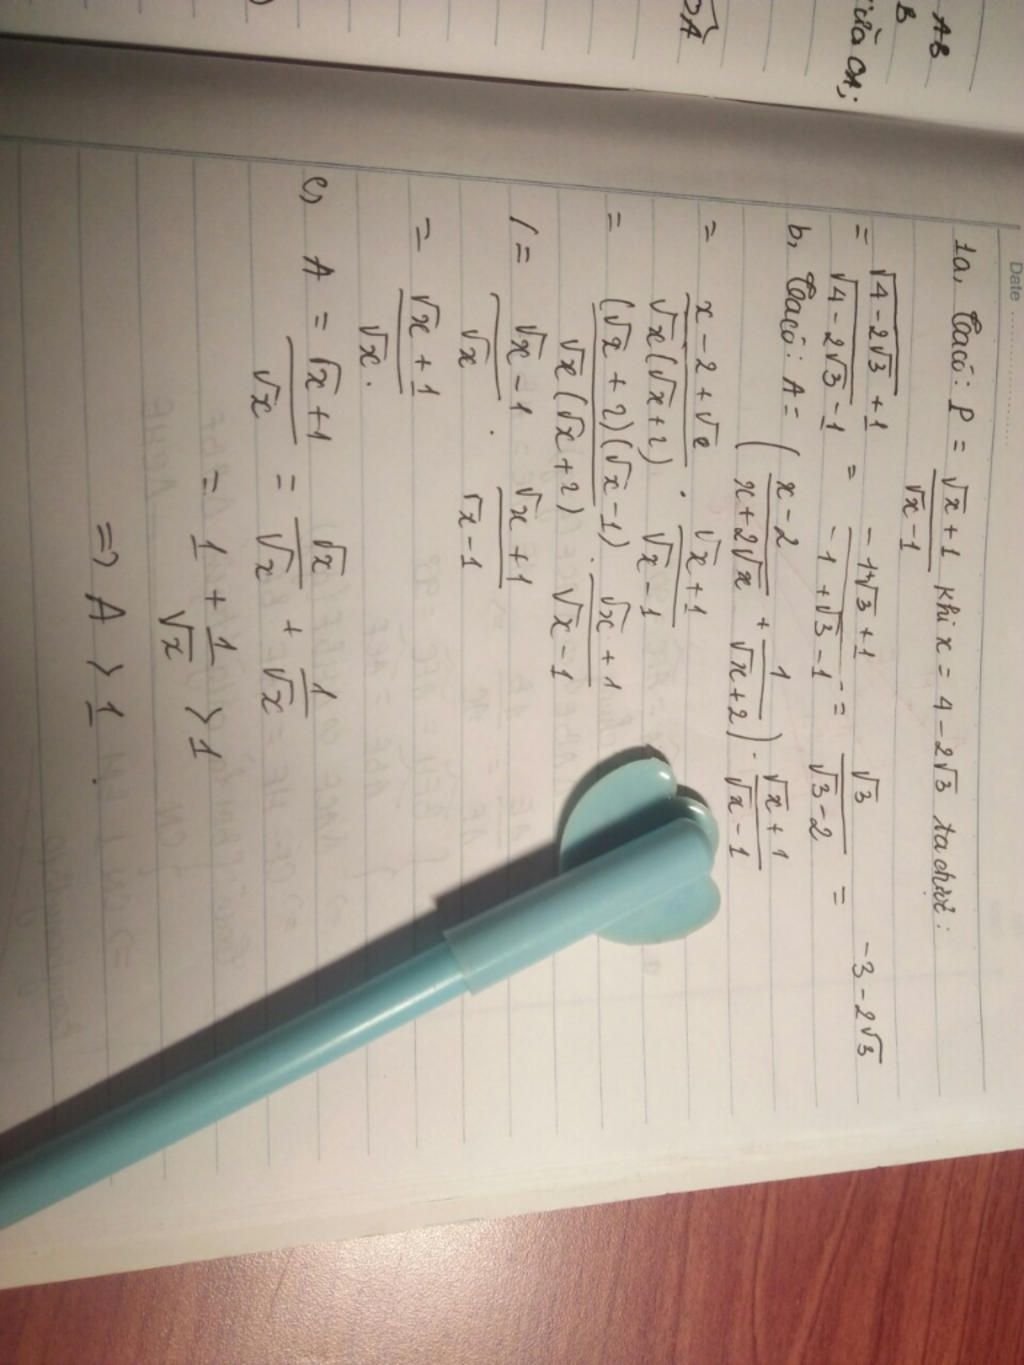 AB
B
OA;
OA
Date
1a, Ta có: P = √x+1 / √x-1 khi x = 4-2√3 ta được:
= √4-2√3 +1 / √4-2√3 -1 = -1+√3+1 / -1+√3-1 = √3 / √3-2 = -3-2√3
b, Ta có: A = ( x-2 / x+2√x + 1 / √x+2 ) . √x+1 / √x-1
= x-2+√x / √x(√x+2) . √x+1 / √x-1
= (√x+2)(√x-1) / √x(√x+2) . √x+1 / √x-1
/ = √x-1 / √x . √x+1 / √x-1
= √x+1 / √x .
c, A = √x+1 / √x = √x / √x + 1 / √x
= 1 + 1 / √x > 1
=> A > 1 .